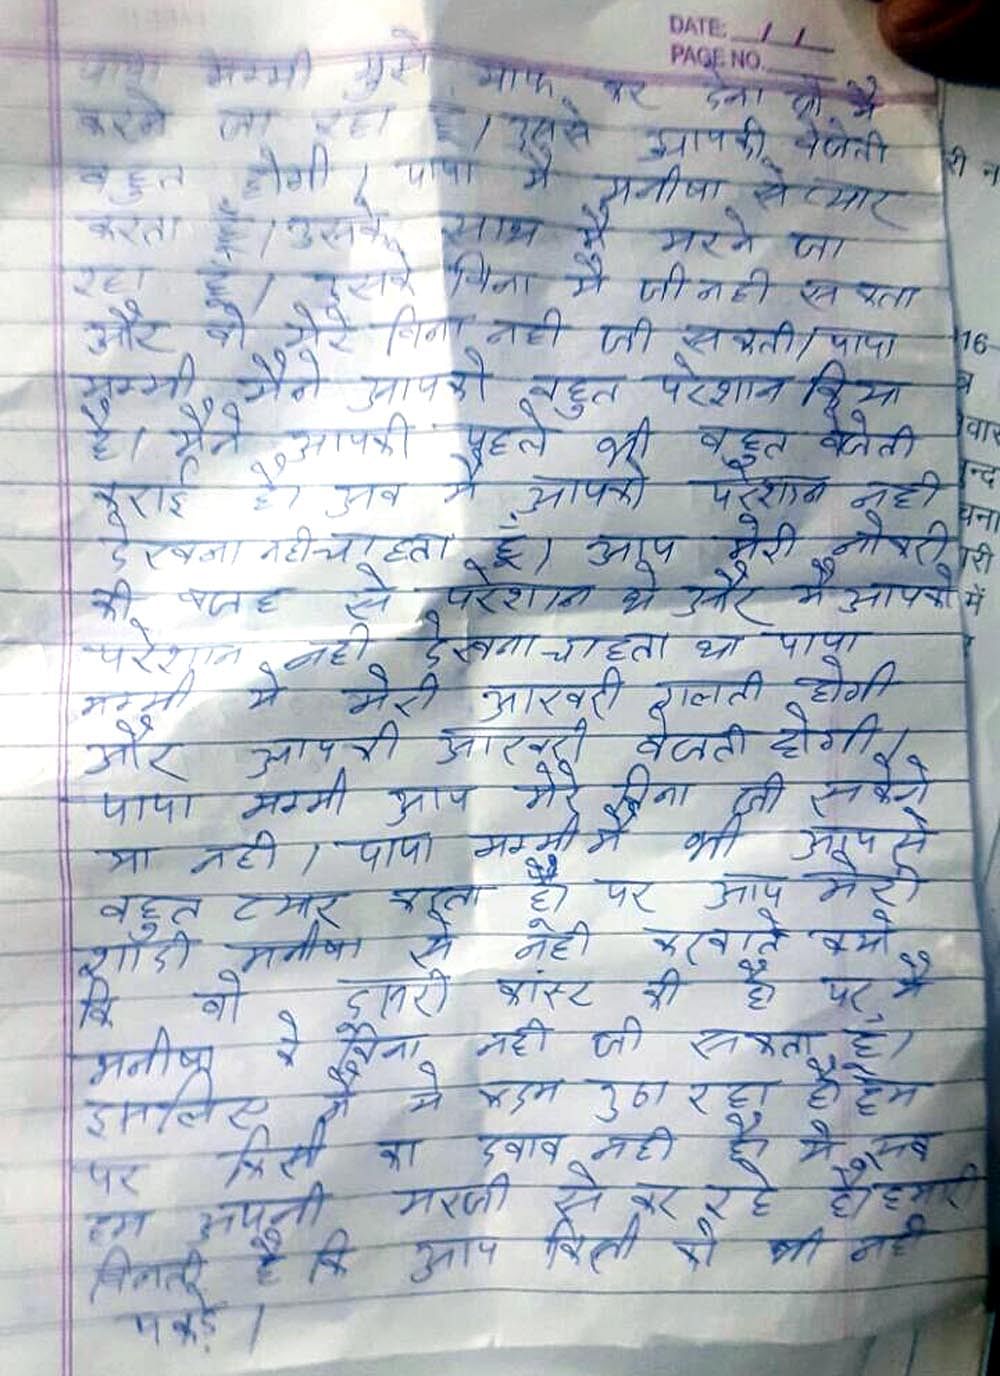 DATE: / /
PAGE NO.
पापा मम्मी मुझे माफ कर देना जो मै
करने जा रहा हूँ। उससे आपकी बेजेती
बहुत होगी। पापा मै मनीषा से प्यार
करता हूँ। उसके साथ मै मरने जा
रहा हूँ। उसके बिना मै जी नही सकता
और वो मेरे बिना नही जी सकती। पापा
मम्मी मैने आपको बहुत परेशान किया
है। मैने आपकी पहले भी बहुत बेजेती
कराई है। अब मै आपको परेशान नही
देखना नही चाहता हूँ। आप मेरी नौकरी
की वजह से परेशान थे और मै आपको
परेशान नही देखना चाहता था पापा
मम्मी ये मेरी आखरी गलती होगी
और आपकी आखरी बेजती होगी।
पापा मम्मी आप मेरे बिना जी सकेगे
या नही। पापा मम्मी मै भी आप से
बहुत प्यार करता हूँ पर आप मेरी
शादी मनीषा से नही करवाते क्यो
कि वो दुसरी कास्ट की है पर मै
मनीषा के बिना नही जी सकता हूँ।
इसलिए मै ये कदम उठा रहा हूँ हम
पर किसी का दबाव नही है ये सब
हम अपनी मरजी से कर रहे है हमारी
विनती है कि आप किसी को भी नही
पकड़े।
री न
16
वार
न्द
चना
री
में